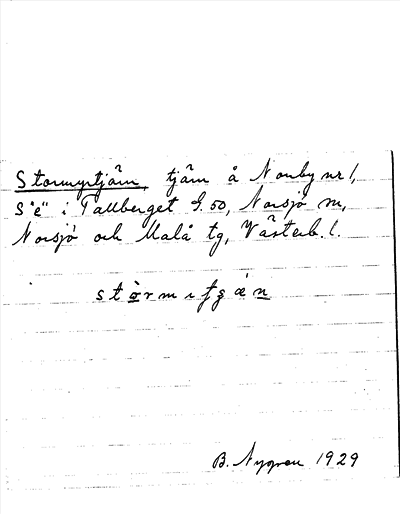 Stormyrtjärn, tjärn å Norrby nr 1,
S "e" i Tallberget G.50, Norsjö sn,
Norsjö och Malå tg, Västerb. l.
B. Nygren 1929